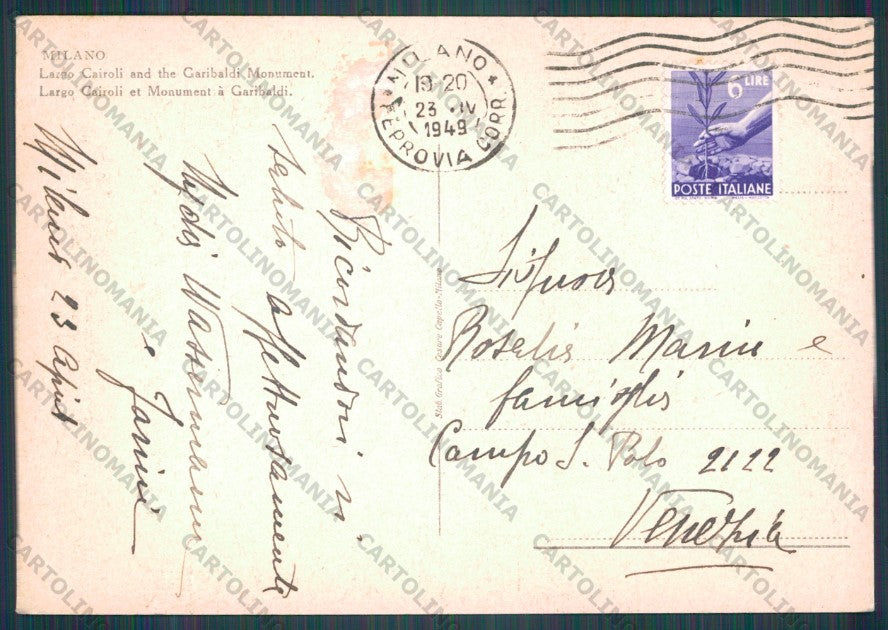 MILANO
Largo Cairoli and the Garibaldi Monument.
Largo Cairoli et Monument à Garibaldi.
MILANO
19 20
23 IV
1949
FERROVIA CORR.
6 LIRE
POSTE ITALIANE
Ricordandovi vi
saluto affettuosamente
Wassermann
e
Milano 23 April
Stab. Grafico Cesare Capello - Milano
Signora
Rosalia Marin e
famiglia
Campo S. Polo 2122
Venezia
CARTOLINOMANIA